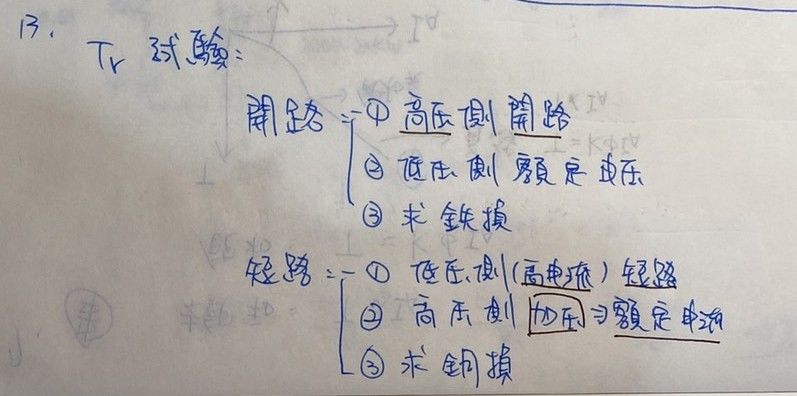 13.
Tr 試驗:
開路:① 高压側開路
② 低压側額定电压
③ 求鉄損
短路:① 低压側(高电流)短路
② 高压側加压到額定电流
③ 求銅損